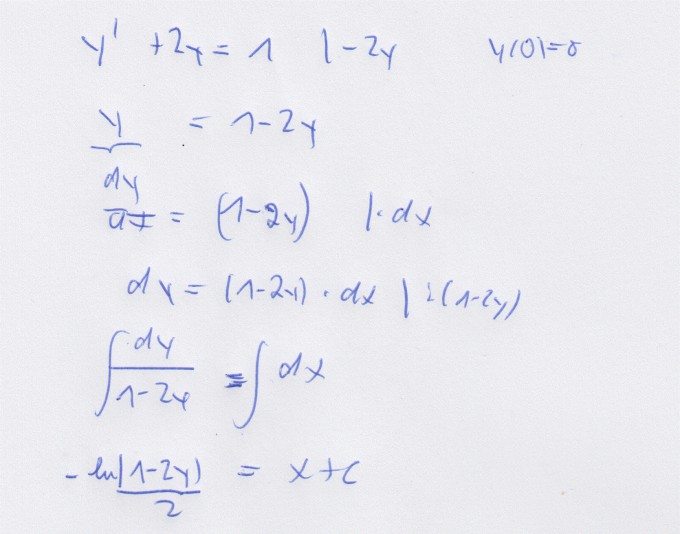 y' +2y = 1 |-2y y(0)=0
y = 1-2y
dy
dx = (1-2y) |· dx
dy = (1-2y) · dx | :(1-2y)
∫ dy / 1-2y = ∫ dx
- ln|1-2y) / 2 = x+c